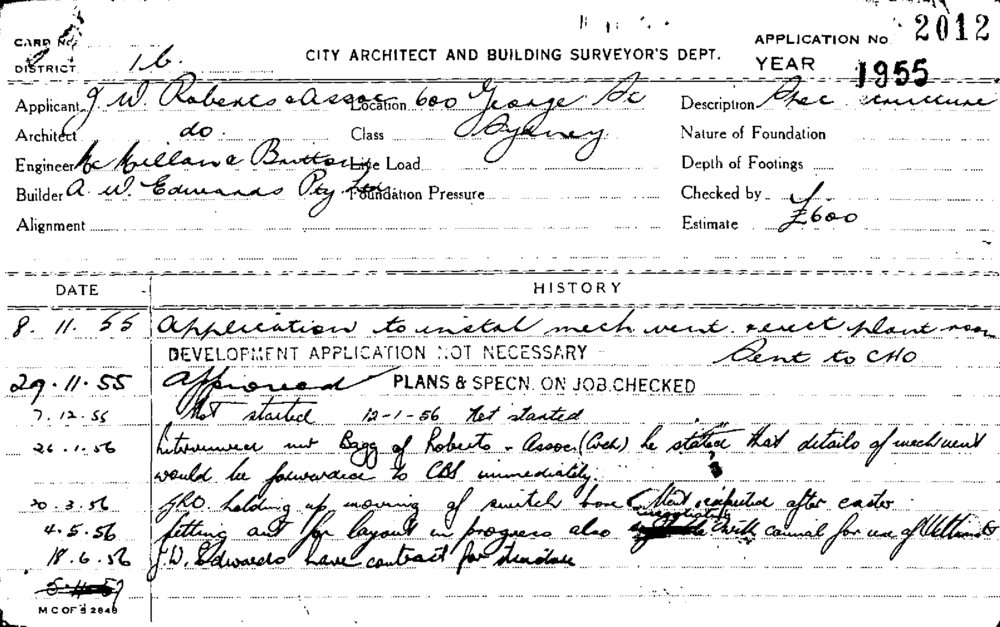 CARD No. CITY ARCHITECT AND BUILDING SURVEYOR'S DEPT. APPLICATION No. 2012
DISTRICT 1b. YEAR 1955
Applicant J. W. Roberts & Assoc Location 600 George St Description Struc structure
Architect do. Class Sydney Nature of Foundation
Engineer Mc Millan & Britton Live Load Depth of Footings
Builder A. W. Edwards Pty Ltd Foundation Pressure Checked by
Alignment Estimate £600
DATE HISTORY
8. 11. 55 Application to instal mech vent & erect plant room
DEVELOPMENT APPLICATION NOT NECESSARY Sent to CHO
29.11.55 Approved PLANS & SPECN. ON JOB.CHECKED
7.12.55 Not started 12-1-56 Not started
26.1.56 Interviewed mr Bagg of Roberts & Assoc. (Arch) he stated that details of mech vent
would be forwarded to CBS immediately.
20.3.56 holding up moving of switch Next inspected after easter
4.5.56 fitting out for layout in progress also negotiating with council for use of
18.6.56 J.W. Edwards have contract for structure
M C OF S 2848